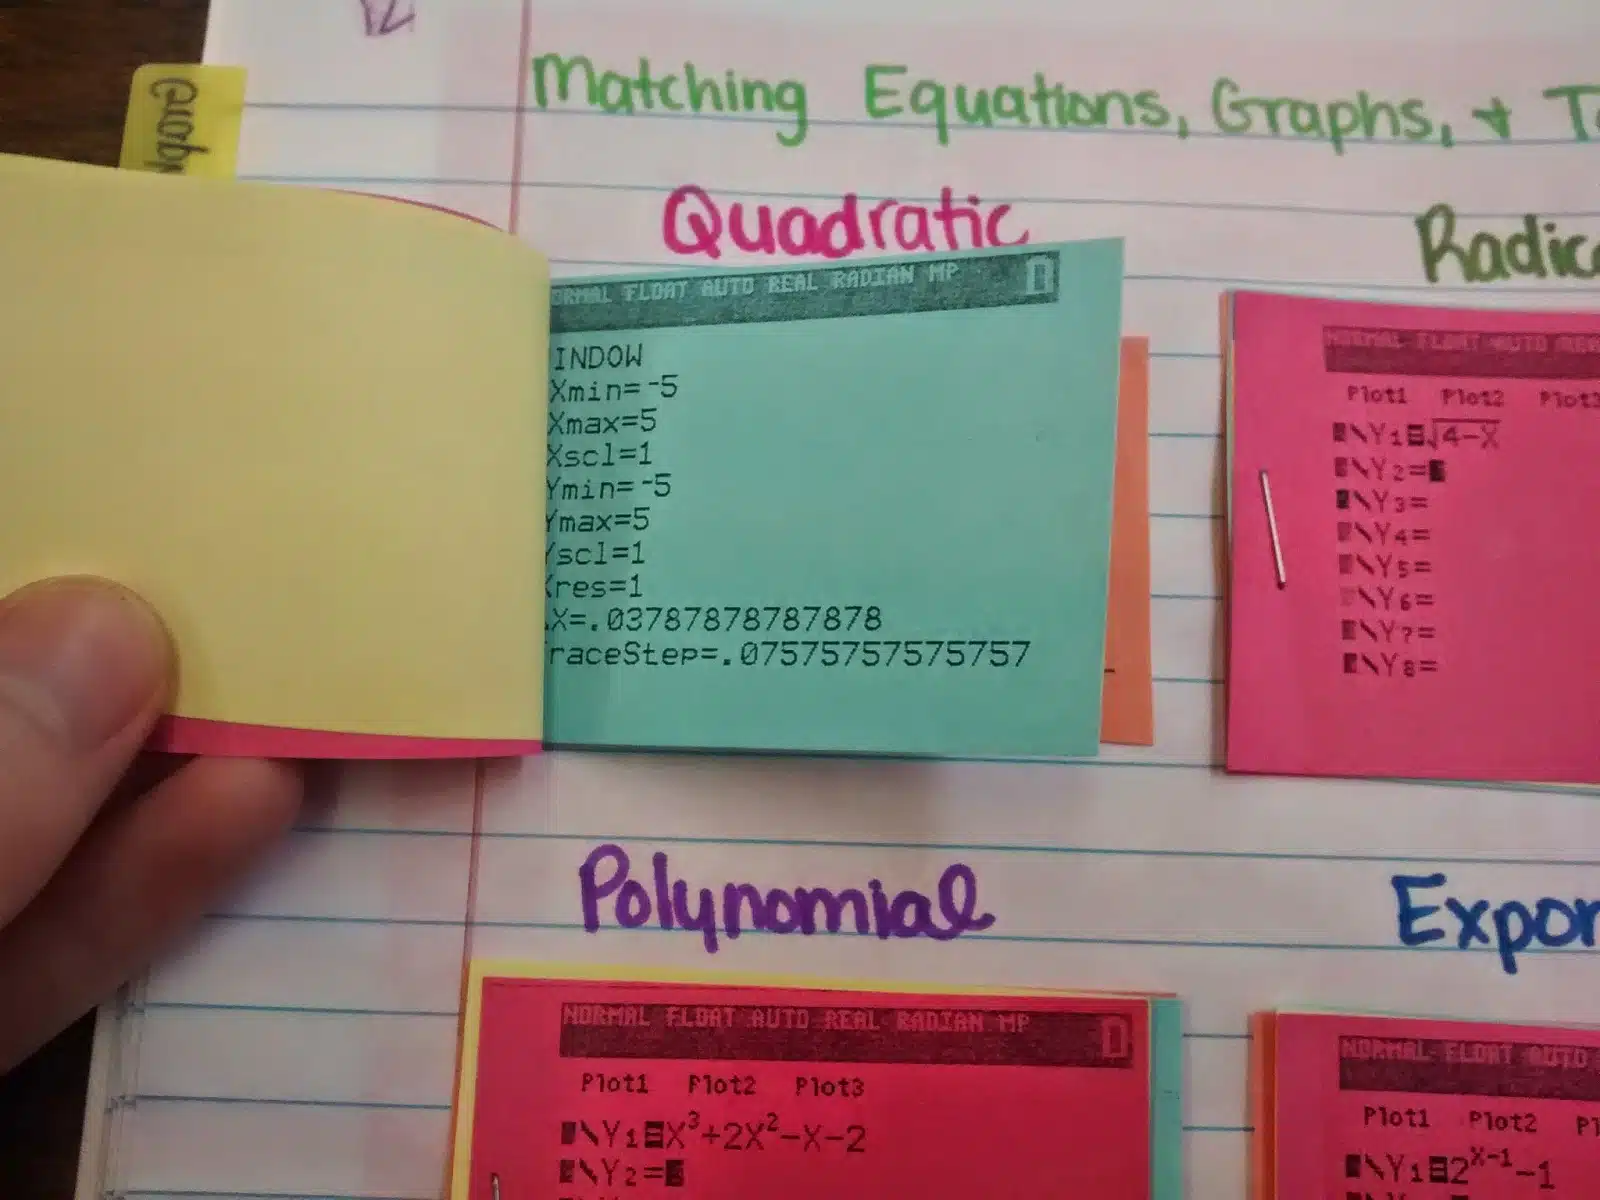 Matching Equations, Graphs, +
Quadratic
NORMAL FLOAT AUTO REAL RADIAN MP
INDOW
Xmin=-5
Xmax=5
Xscl=1
Ymin=-5
Ymax=5
Yscl=1
Xres=1
X=.03787878787878
raceStep=.07575757575757
Radic
NORMAL FLOAT AUTO REA
Plot1 Plot2 Plot3
\Y1=√4-X
\Y2=
\Y3=
\Y4=
\Y5=
\Y6=
\Y7=
\Y8=
Polynomial
NORMAL FLOAT AUTO REAL RADIAN MP
Plot1 Plot2 Plot3
\Y1=X³+2X²-X-2
\Y2=
Expon
NORMAL FLOAT AUTO
Plot1 Plot2 Pl
\Y1=2^(X-1)-1